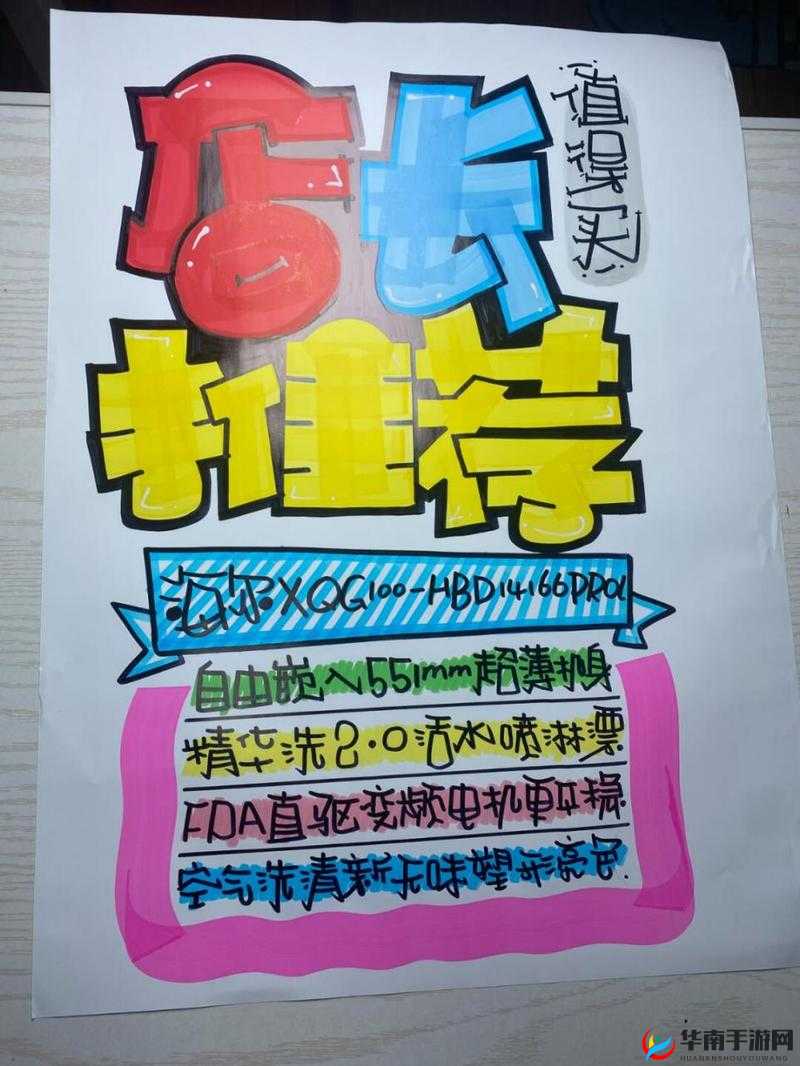 店长
值得买
推荐
海尔XQG100-HBD14166PROL
自由嵌入551mm超薄机身
精华洗2.0活水喷淋漂
FDA直驱变频电机更平稳
空气洗清新无味塑形亮色.
华南手游网
HUANANSHOUYOUWANG